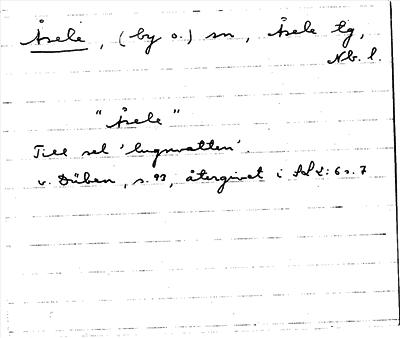 Åsele, (by o.) sn, Åsele tg,
Nb. l.
"Åsele"
Till sel 'lugnvatten'.
v. Düben, s. 93, återgivet i SoL 2:6 s. 7